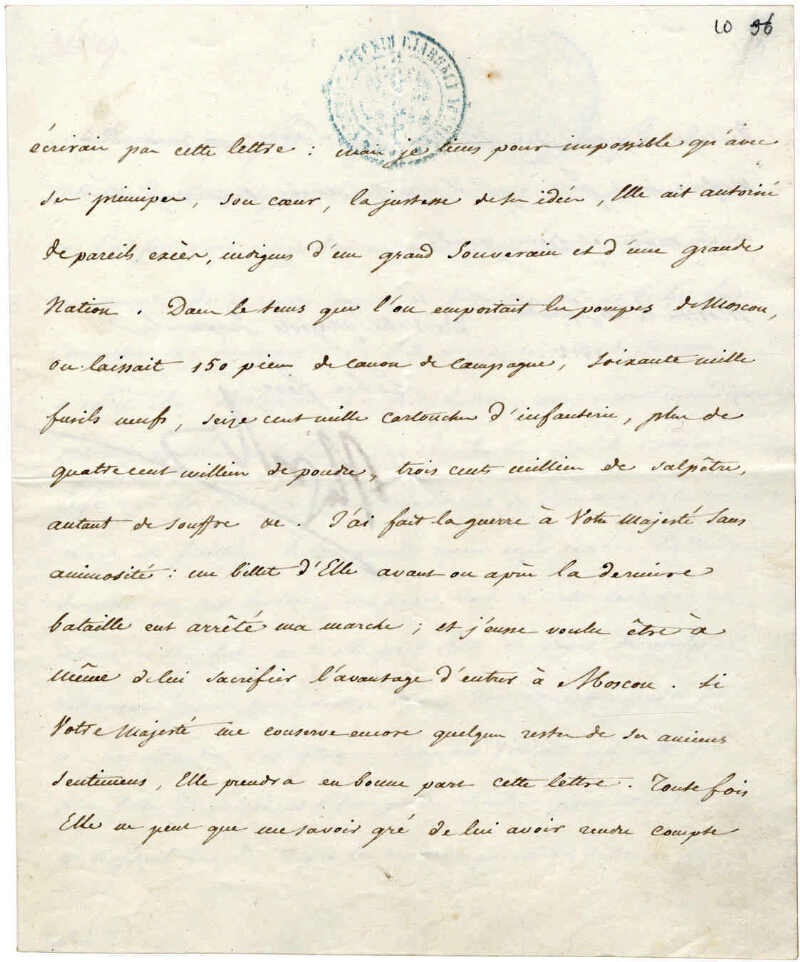 10 96
écrirais par cette lettre : mais je tiens pour impossible qu'avec
ses principes, son cœur, la justesse de ses idées, Elle ait autorisé
de pareils excès, indignes d'un grand Souverain et d'une grande
Nation. Dans le tems que l'on emportait les pompes de Moscou,
on laissait 150 pièces de canon de campagne, soixante mille
fusils neufs, seize cent mille cartouches d'infanterie, plus de
quatre cent milliers de poudre, trois cents milliers de salpêtre,
autant de souffre &c. J'ai fait la guerre à Votre Majesté sans
animosité : un billet d'Elle avant ou après la dernière
bataille eut arrêté ma marche ; et j'eusse voulu être à
même de lui sacrifier l'avantage d'entrer à Moscou. Si
Votre Majesté me conserve encore quelques restes de ses anciens
sentimens, Elle prendra en bonne part cette lettre. Toute fois
Elle ne peut que me savoir gré de lui avoir rendu compte